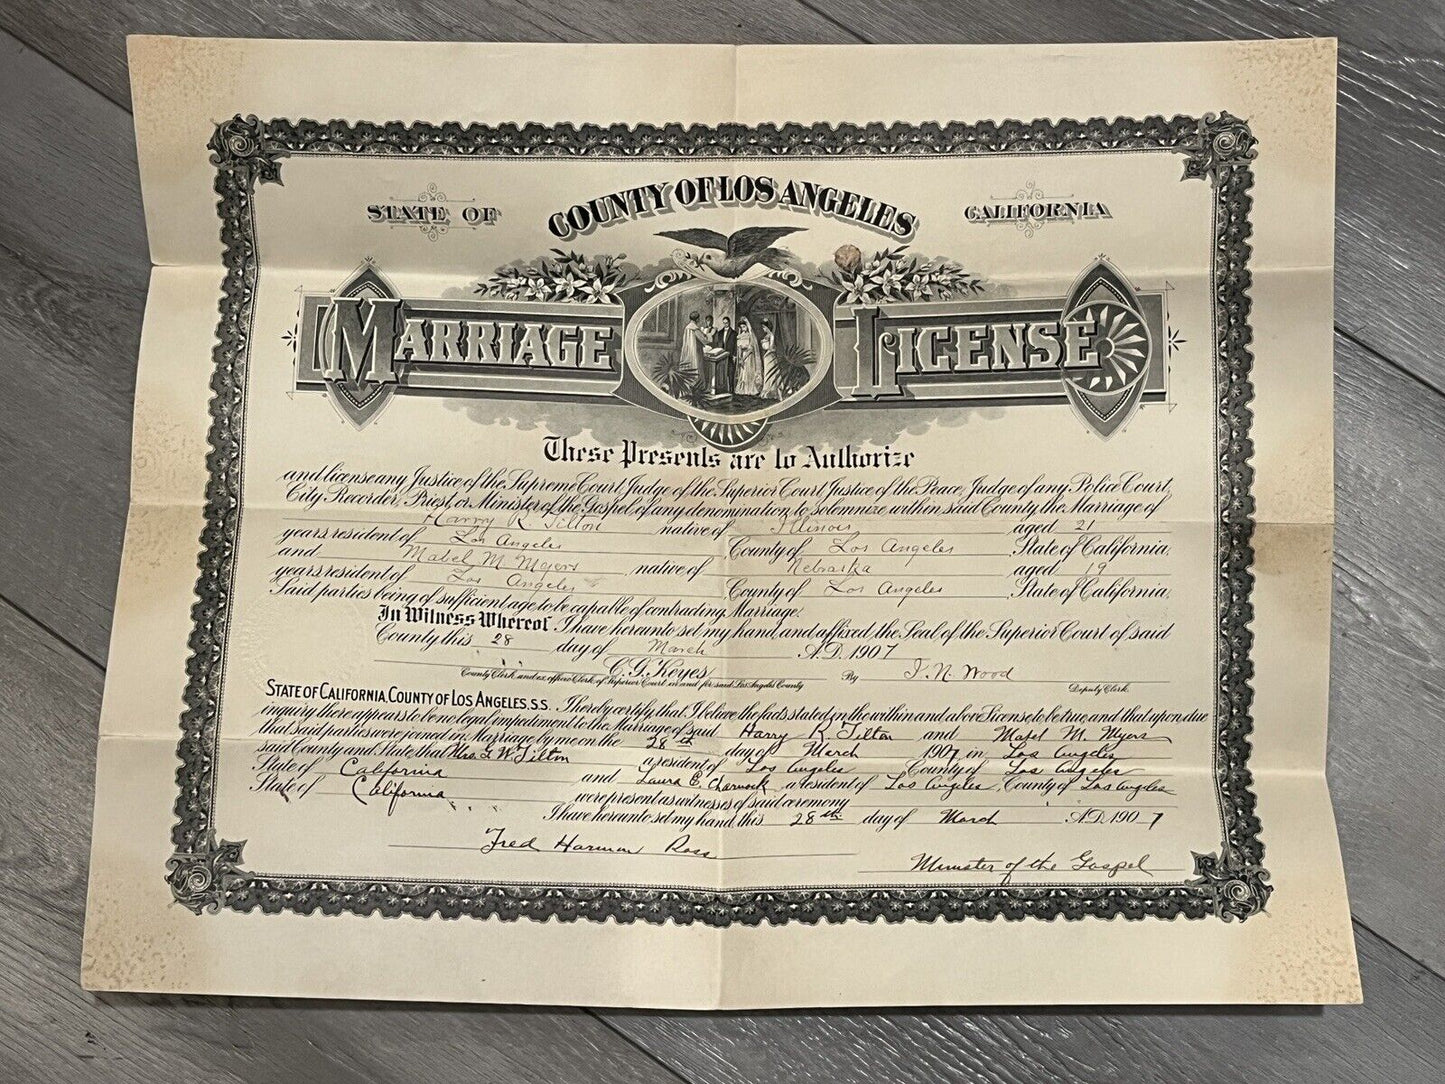 STATE OF COUNTY OF LOS ANGELES CALIFORNIA
MARRIAGE LICENSE
These Presents are to Authorize
and license any Justice of the Supreme Court, Judge of the Superior Court, Justice of the Peace, Judge of any Police Court,
City Recorder, Priest, or Minister of the Gospel of any denomination, to solemnize within said County the Marriage of
Harry R. Tilton native of Illinois aged 21
years resident of Los Angeles County of Los Angeles State of California,
and Mabel M Myers native of Nebraska aged 19
years resident of Los Angeles County of Los Angeles State of California.
Said parties being of sufficient age to be capable of contracting Marriage.
In Witness Whereof I have hereunto set my hand, and affixed, the Seal of the Superior Court of said
County this 28 day of March A.D. 1907
C. G. Keyes By I. N. Wood
County Clerk, and ex officio Clerk of Superior Court in and for said Los Angeles County Deputy Clerk.
STATE OF CALIFORNIA, COUNTY OF LOS ANGELES, S.S. I hereby certify, that I believe the facts stated in the within and above License to be true, and that upon due
inquiry there appears to be no legal impediment to the Marriage of said Harry R. Tilton and Mabel M. Myers
that said parties were joined in Marriage by me on the 28th day of March 1907 in Los Angeles
said County and State that Mrs. G. W. Tilton a resident of Los Angeles County of Los Angeles
State of California and Laura E. Charnock a resident of Los Angeles, County of Los Angeles
State of California were present as witnesses of said ceremony
I have hereunto set my hand, this 28th day of March A.D. 1907
Fred Harmon Ross
Minister of the Gospel